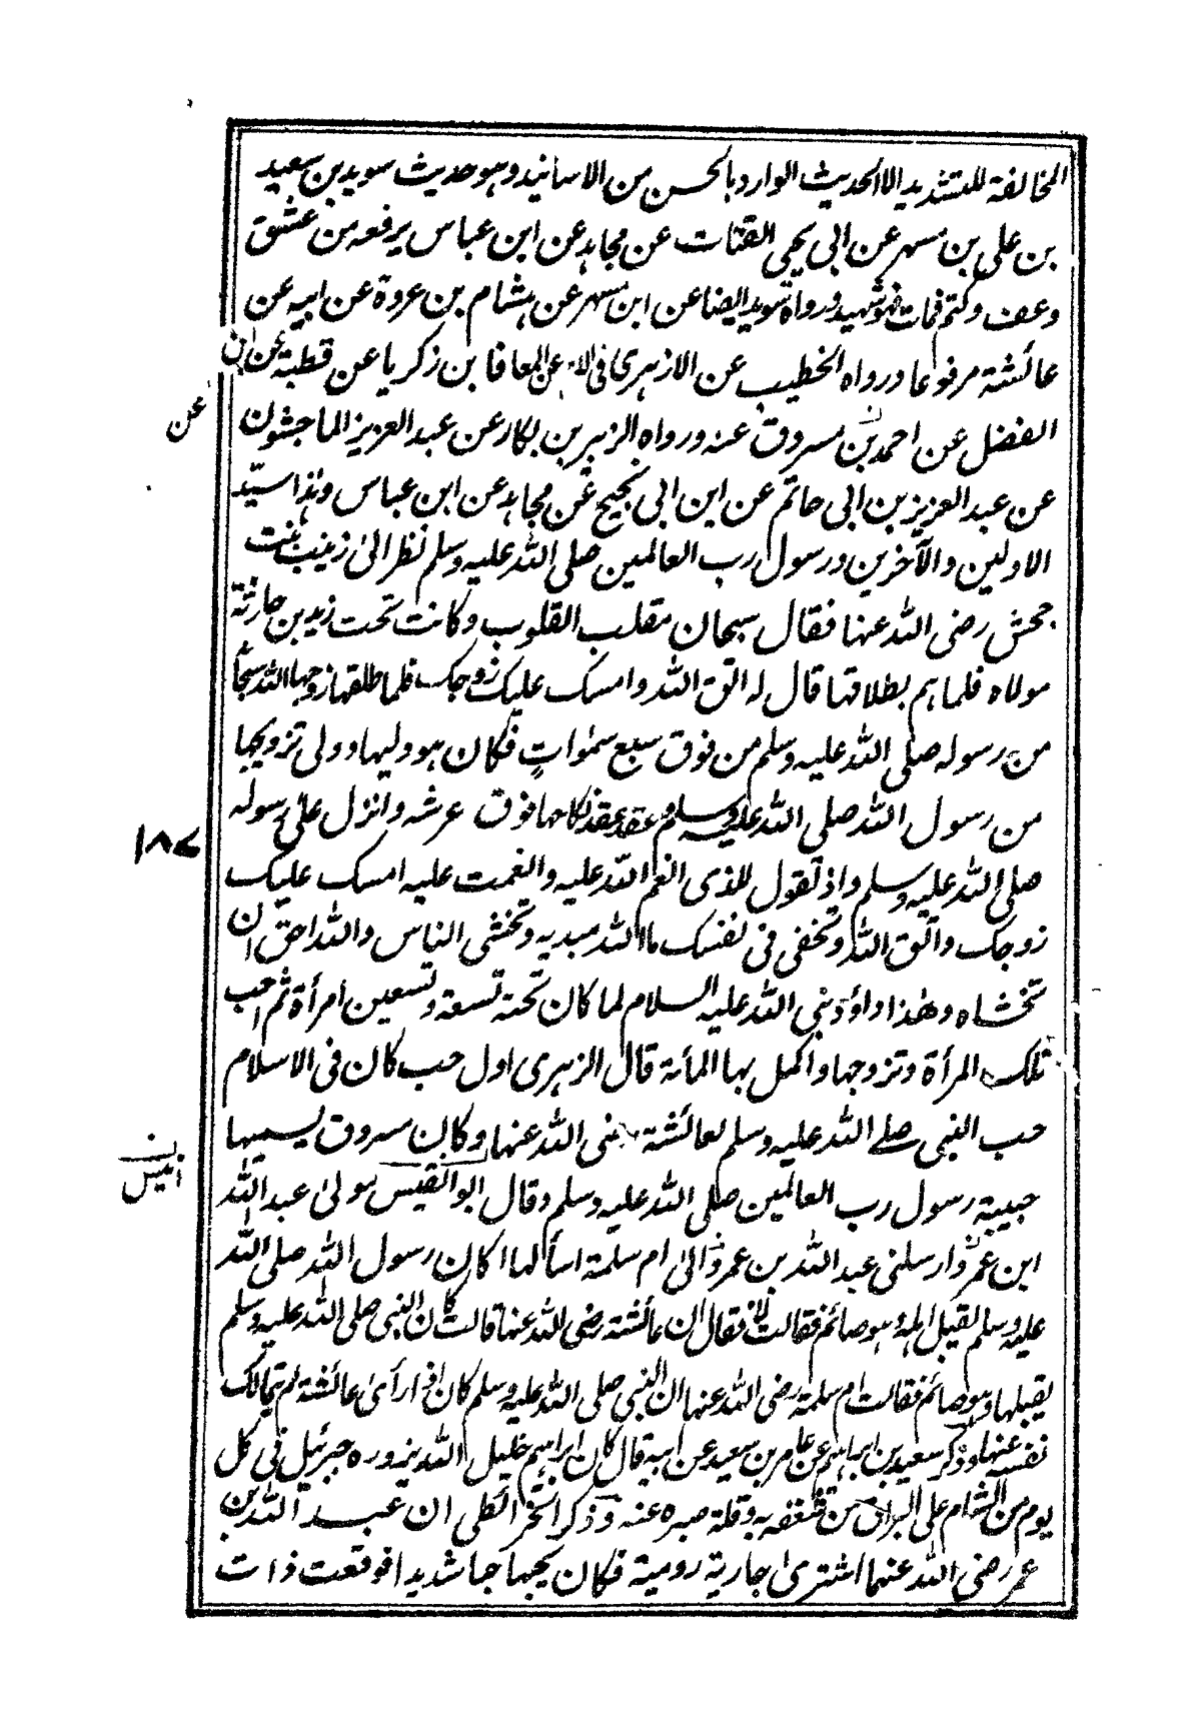 المخالفة للتشديد الا الحديث الوارد بالحسن من الاسانيد وهو حديث سويد بن سعيد
بن علي بن مسهر عن ابي يحيى القتات عن مجاهد عن ابن عباس يرفعه من عشق
وعف وكتم فمات فهو شهيد ورواه سويد ايضا عن ابن مسهر عن هشام بن عروة عن ابيه عن
عائشة مرفوعا ورواه الخطيب عن الازهري عن المعافا بن زكريا عن قطبة عن ابن
عن
الفضل عن احمد بن مسروق عنه ورواه الزبير بن بكار عن عبد العزيز الماجشون
عن عبد العزيز بن ابي حاتم عن ابن ابي نجيح عن مجاهد عن ابن عباس وهذا سيد
الاولين والآخرين ورسول رب العالمين صلى الله عليه وسلم نظر الى زينب بنت
جحش رضى الله عنها فقال سبحان مقلب القلوب وكانت تحت زيد بن حارثة
مولاه فلما هم بطلاقها قال له اتق الله وامسك عليك زوجك فلما طلقها زوجها الله سبحا
من رسوله صلى الله عليه وسلم من فوق سبع سموات فكان هو وليها وولى تزويجها
من رسول الله صلى الله عليه وسلم وعقد عقد نكاحها فوق عرشه وانزل على رسوله
١٨٧
صلى الله عليه وسلم واذ تقول للذى انعم الله عليه وانعمت عليه امسك عليك
زوجك واتق الله وتخفى فى نفسك ما الله مبديه وتخشى الناس والله احق ان
تخشاه وهذا داؤد نبى الله عليه السلام لما كان تحته تسعة وتسعين امرأة ثم احب
تلك المرأة وتزوجها واكمل بها المائة قال الزهرى اول حب كان فى الاسلام
حب النبى صلے الله عليه وسلم لعائشة رضى الله عنها وكان مسروق يسميها
حبيبة رسول رب العالمين صلى الله عليه وسلم وقال ابو القيس مولى عبد الله
ابن عمرو ارسلنى عبد الله بن عمرو الى ام سلمة اسألها اكان رسول الله صلى الله
عليه وسلم يقبل اهله وهو صائم فقالت لا فقال ان عائشة رضى الله عنها قالت كان النبى صلى الله عليه وسلم
يقبلها وهو صائم فقالت ام سلمة رضى الله عنها ان النبى صلى الله عليه وسلم كان اذا رأى عائشة لم يتمالك
نفسه عنها وذكر سعيد بن ابراهيم عن عامر بن سعيد عن ابيه قال كان ابراهيم خليل الله يزوره جبرئيل فى كل
يوم من الشام على البراق من شغفه به وقلة صبره عنه وذكر الخرائطى ان عبد الله بن
عمر رضى الله عنهما اشترى جارية رومية فكان يحبها حبا شديدا فوقعت ذات